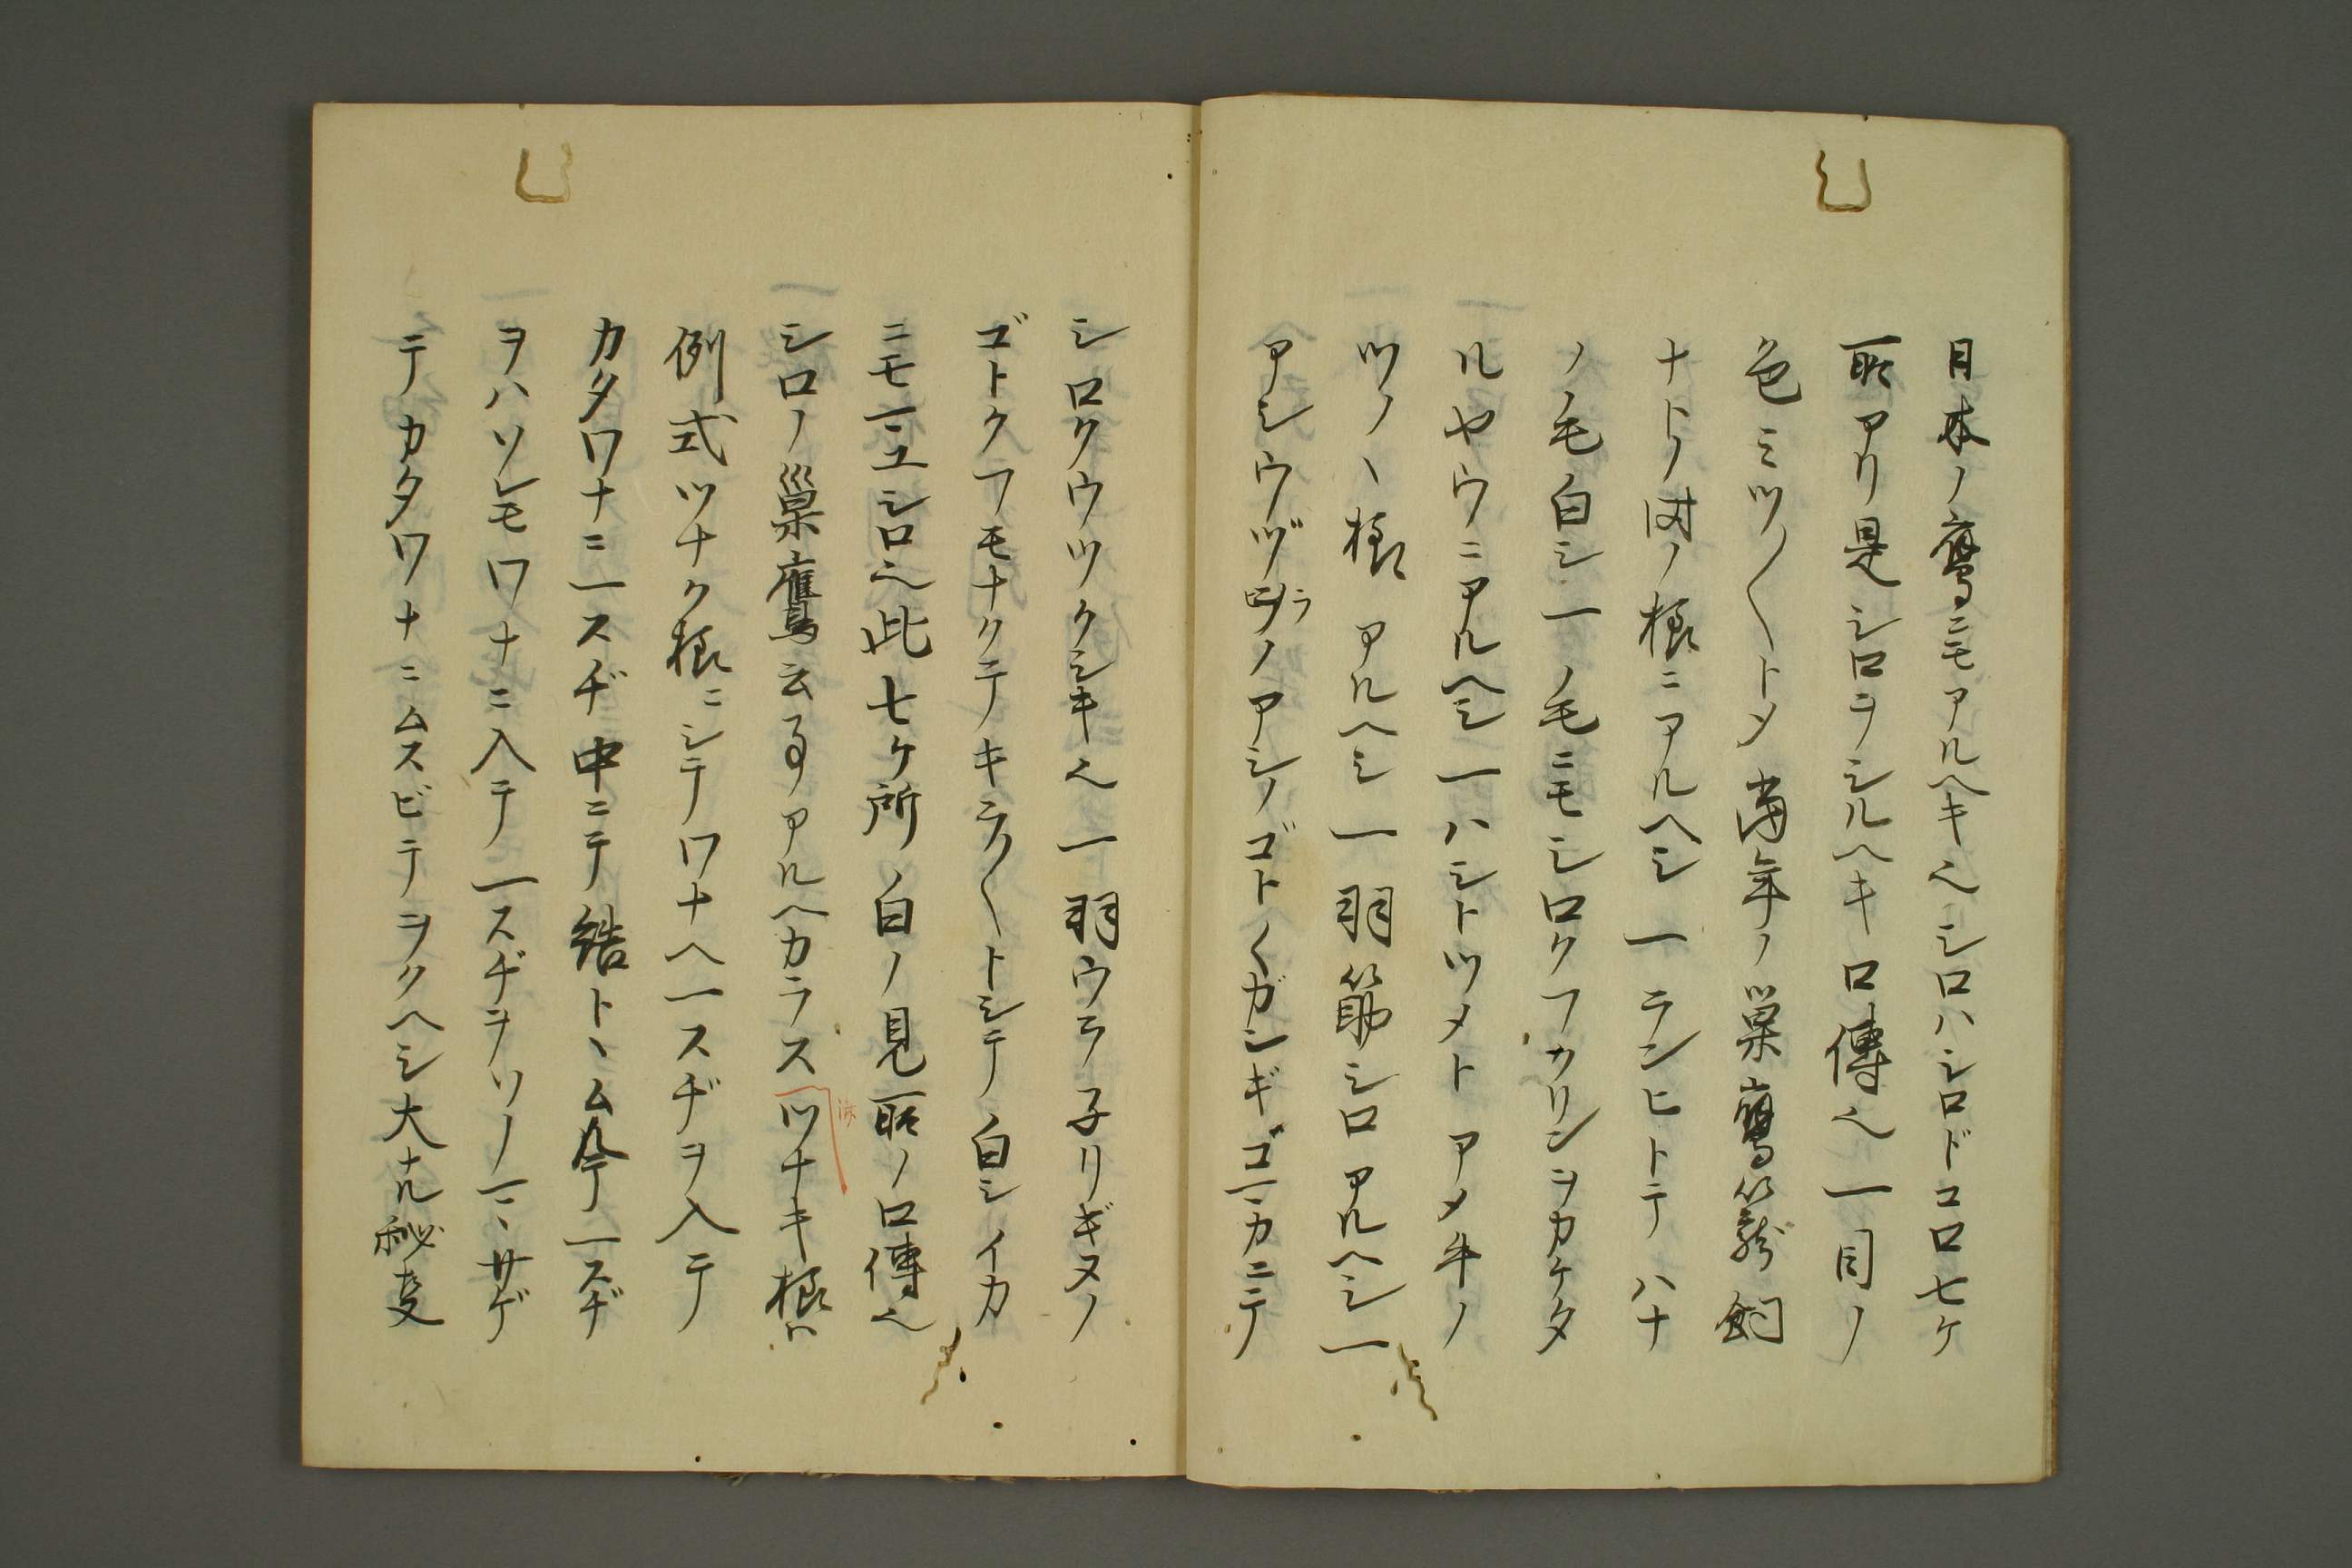 日本ノ鷹ニモアルヘキ也シロハシロドコロ七ケ
所アリ是シロヲシルヘキ口傳也一目ノ
色ミツ〱トメ當年ノ巣鷹籠飼
ナトノ時ノ様ニアルヘシ一ランヒトテハナ
ノ毛白シ一ノ毛ニモシロクフカリンヲカケタ
ルヤウニアルヘシ一ハシトツメトアメ牛ノ
ツノヽ様アルヘシ一羽節シロアルヘシ一
アシウヅラノアシノゴト〱ガンギゴマカニテ
シロクウツクシキ也一羽ウラ子リギヌノ
ゴトクフモナクテキラ〱トシテ白シイカ
ニモマユシロ也此七ケ所ノ白ノ見所ノ口傳也
シロノ巣鷹云事アルヘカラスツナキ様ハ
例式ツナク様ニシテワナヘ一スヂヲ入テ
カタワナニ一スヂ中ニテ結トヽムル今一スヂ
ヲハソレモワナニ入テ一スヂヲソノマヽサゲ
テカタワナニムスビテヲクヘシ大ナル秘事